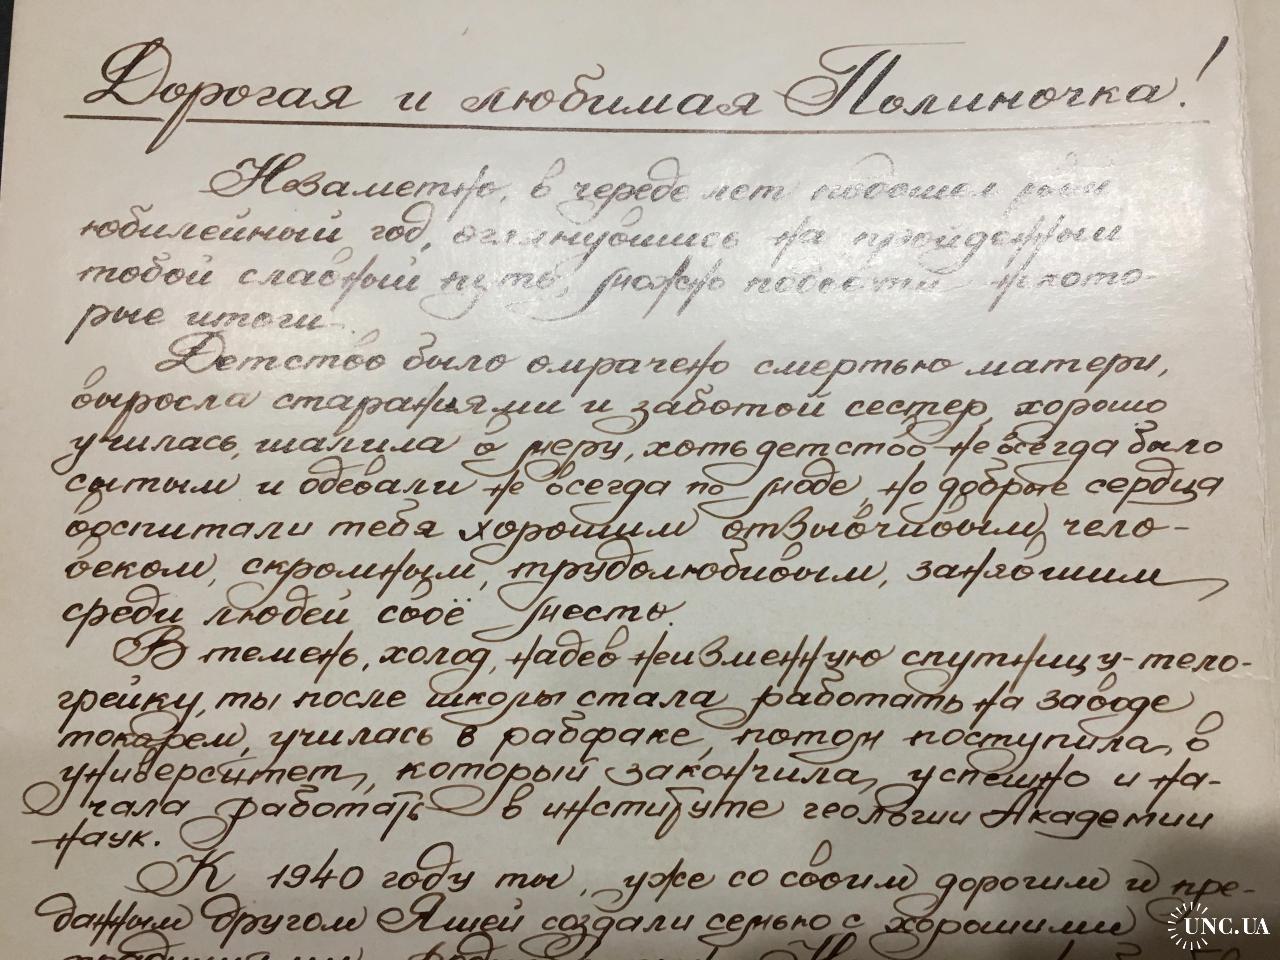 Дорогая и любимая Полиночка!
Незаметно, в череде лет подошел
юбилейный год, оглянувшись на пройденный
тобой славный путь, можно подвести некото-
рые итоги.
Детство было омрачено смертью матери,
выросла стараниями и заботой сестер, хорошо
училась, шалила в меру, хоть детство не всегда было
сытым и одевали не всегда по моде, но добрые сердца
воспитали тебя хорошим отзывчивым чело-
веком, скромным, трудолюбивым, занявшим
среди людей своё место.
В темень, холод, надев неизменную спутницу-тело-
грейку, ты после школы стала работать на заводе
токарем, училась в рабфаке, потом поступила в
университет, который закончила успешно и на-
чала работать в институте геологии Академии
наук.
К 1940 году ты, уже со своим дорогим и пре-
данным другом Яшей создали семью с хорошими
UNC.UA